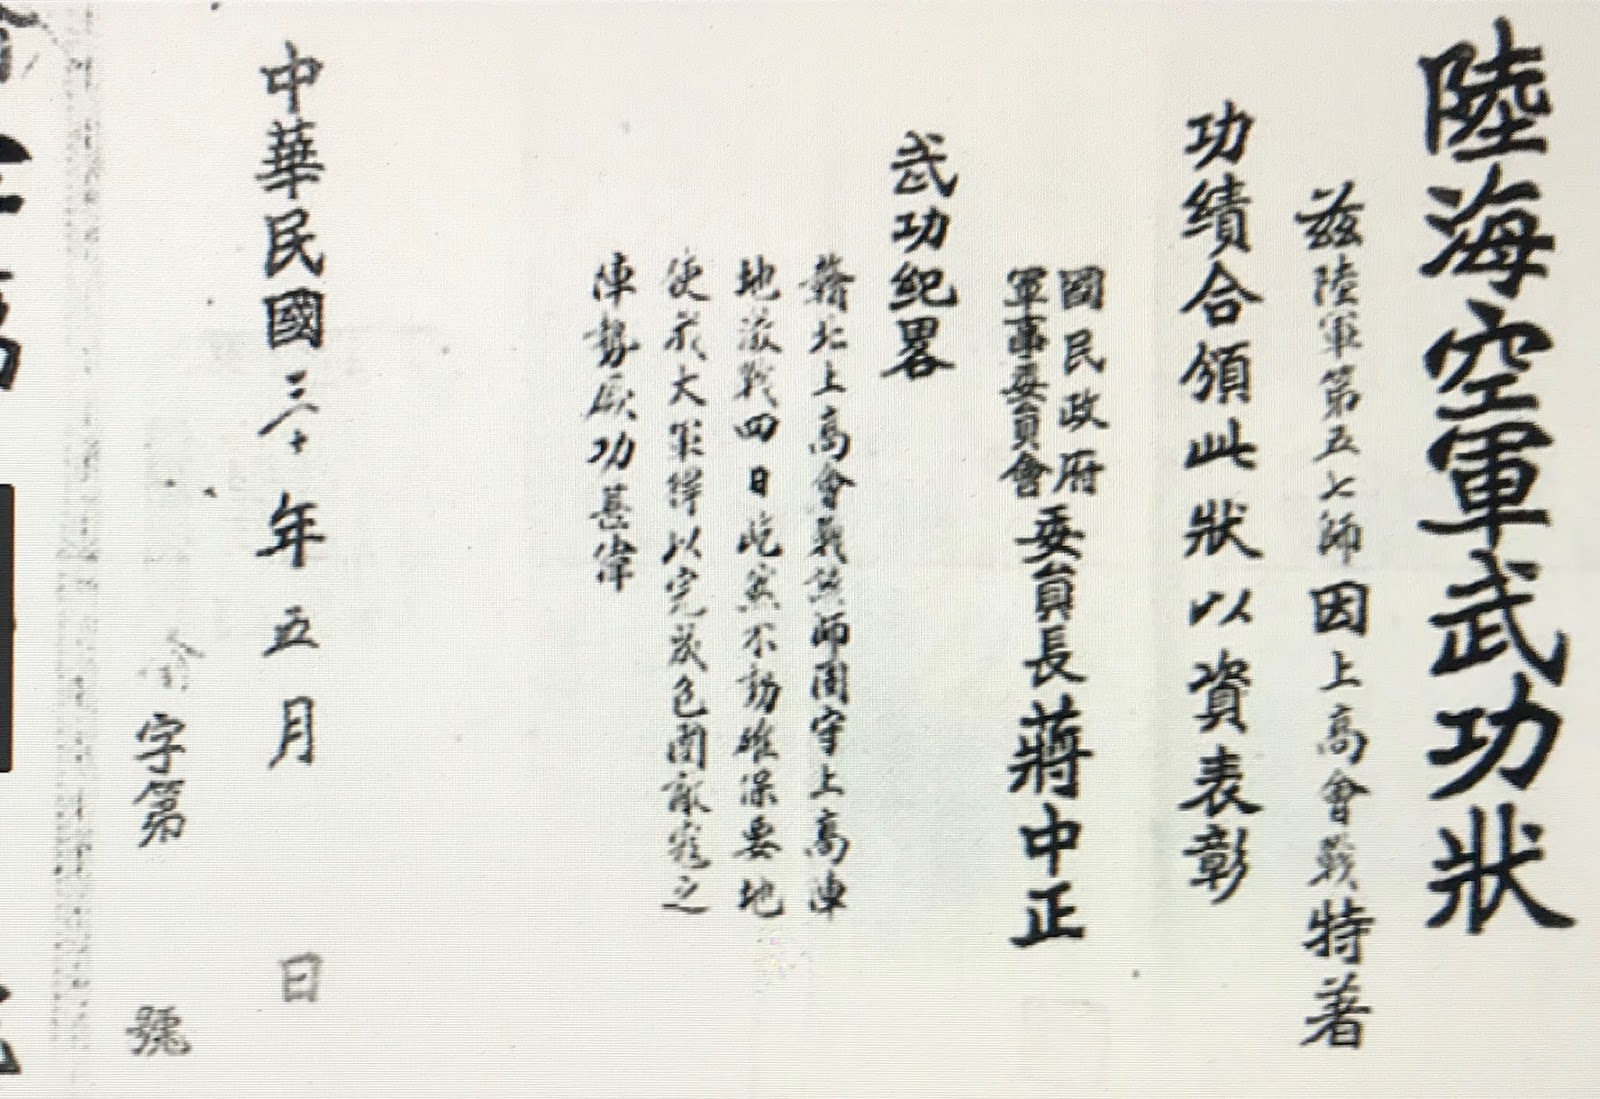 陸海空軍武功狀
茲陸軍第五七師因上高會戰特著
功績合頒此狀以資表彰
國民政府
軍事委員會委員長蔣中正
武功紀畧
贛北上高會戰該師固守上高陣
地激戰四日屹然不動確保要地
使我大軍得以完成包圍敵寇之
陣勢厥功甚偉
中華民國三十年五月 日
字第 號